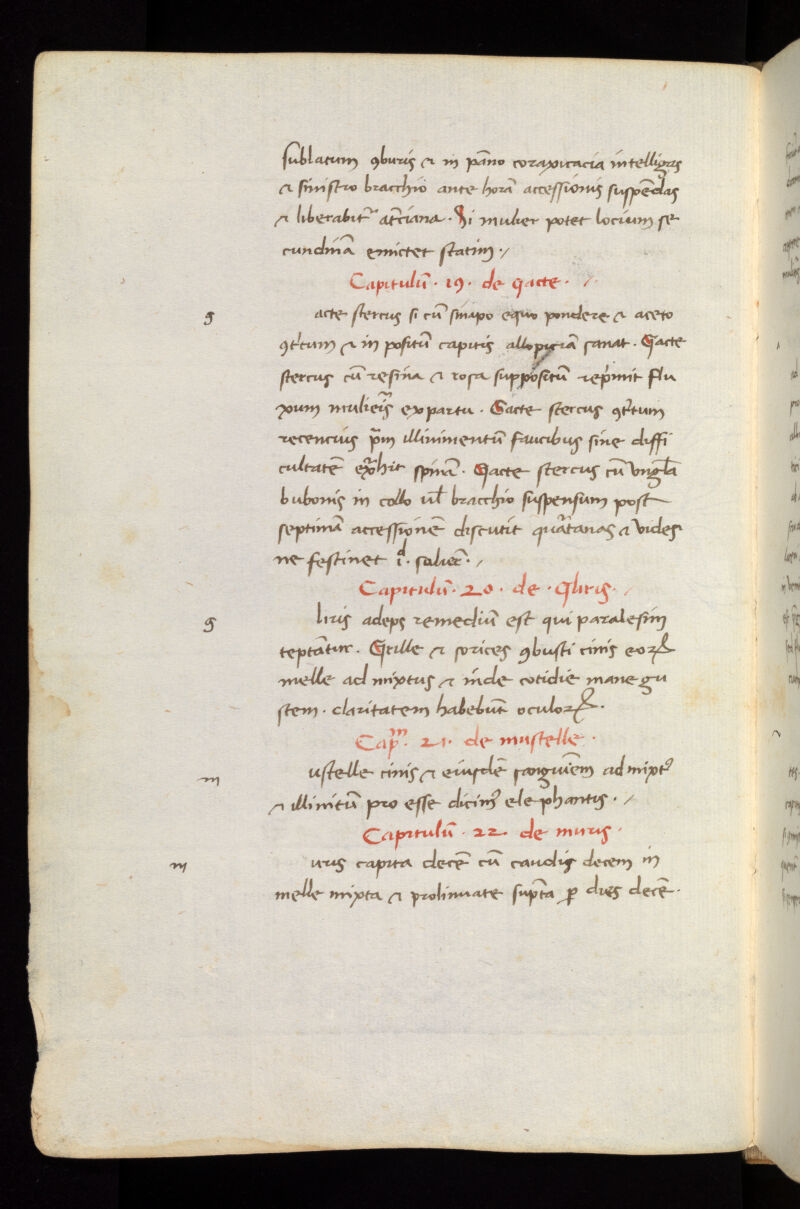 sublatum ꝯburis ⁊ in pāno coraxicacia intelligas
⁊ sinistro bracchio ante horā accessionis suspēdas
⁊ liberabit᷑ at̄ciana. Si mulier potet locium se
cundinā emictet statim./
Capitulū. 19. de gacte. /
g acte stercus si cū sinapo equo pondere ⁊ aceto
ꝯt͛tum ⁊ in positū capitis allopiciā sanat. Gacte
stercus cū resina ⁊ rosa suppositū rep͛mit flu
xum mulieīs ex partu. Gacte stercus ꝯt͛tum
recencius p̄m illinimentū faucibus sine diffi
cultatē ex͛hit spinā. Gacte stercus cū vngl̄a
bubonis in collo ul̄ bracchio suspensum post
septimā accessionē discutit quar̄tanas ⁊ vides
ne festinet .iͩ. salier̄./
Capitulū. 20. de. Gliris.
g liris adeps remediū est qui paralesim
teptāntur. Grille ⁊ sorices ꝯbusti cinis eoꝝ
melle ad mixtus ⁊ inde cotidie mane gu
stem. claritatem habebūt oculoꝝ.
Cap̄ᵐ. 21. de mustelle.
m ustelle cinis ⁊ eiusdē sanguīem ad mixt᷒
⁊ illinitū pro esse dicim᷒ elephantis. /
Capitulū. 22. de muris.
m uris capita decē cū caudis decem in
melle mixta ⁊ prolinuate sup̄ta ꝑ dies decē.